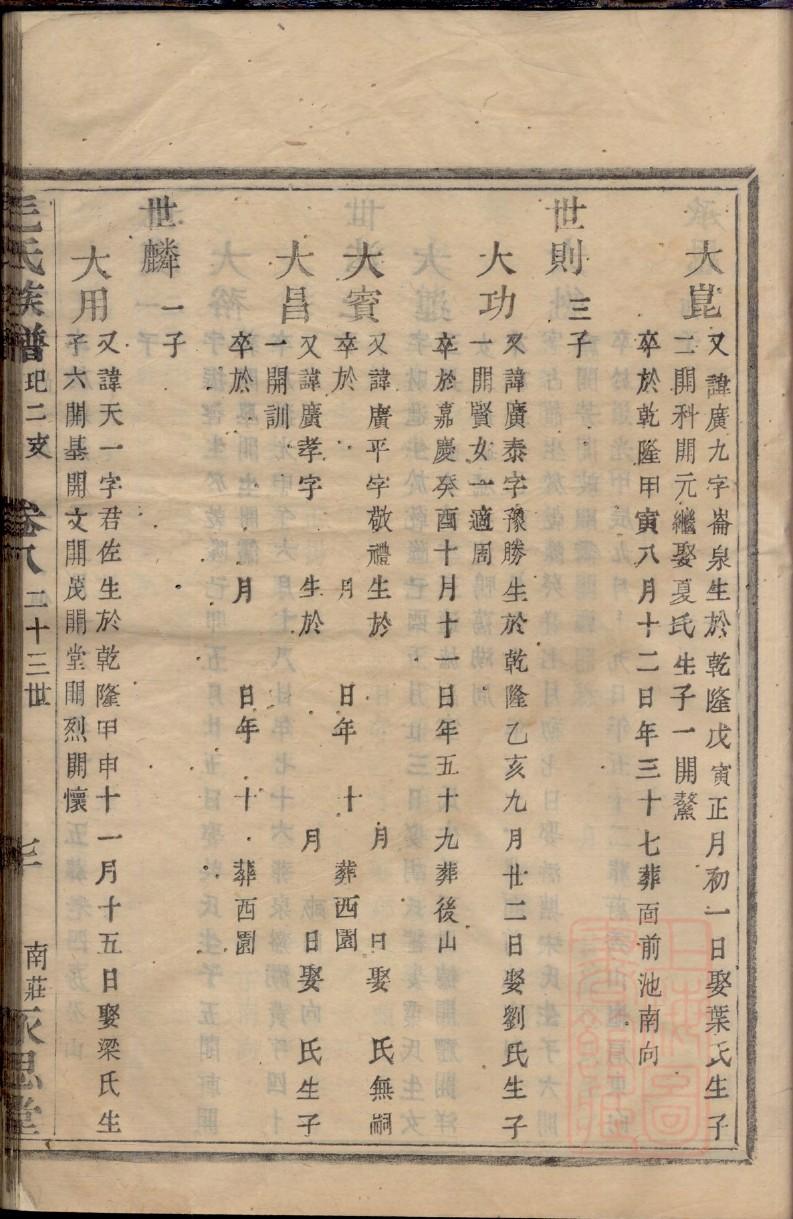 大崑
又諱廣九字崙泉生於乾隆戊寅正月初一日娶葉氏生子
二開科開元繼娶夏氏生子一開鰲
卒於乾隆甲寅八月十二日年三十七葬面前池南向
世則 三子
大功
又諱廣泰字豫勝生於乾隆乙亥九月廿二日娶劉氏生子
一開賢女一適周
卒於嘉慶癸酉十月十一日年五十九葬後山
大賓
又諱廣平字敬禮生於 月 日娶 氏無嗣
卒於 月 日年 十 葬西園
大昌
又諱廣孝字 生於 月 日娶向氏生子
一開訓
卒於 月 日年 十 葬西園
世麟 一子
大用
又諱天一字君佐生於乾隆甲申十一月十五日娶梁氏生
子六開基開文開茂開堂開烈開懷
毛氏族譜 玘二支 卷八 二十三世 三 南莊永思堂